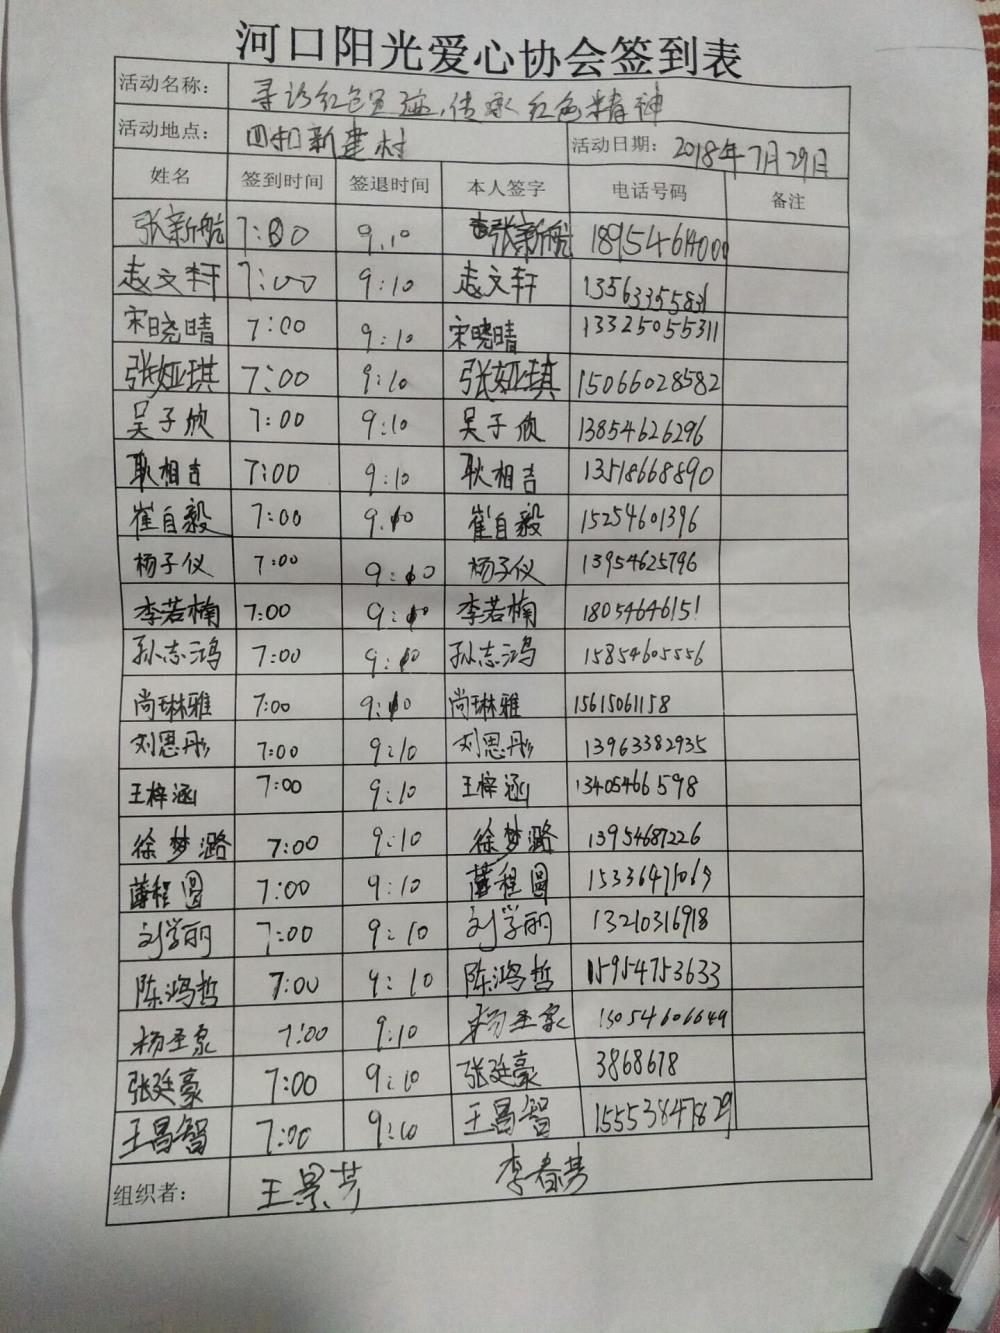 河口阳光爱心协会签到表
活动名称： 寻访红色足迹，传承红色精神
活动地点： 四扣新建村 活动日期： 2018年7月29日
姓名 签到时间 签退时间 本人签字 电话号码 备注
张新航 7:00 9.10 张新航 18954614000
志文轩 7:00 9:10 志文轩
宋晓晴 7:00 9:10 宋晓晴 13325055311
张娅琪 7:00 9:10 张娅琪 15066028582
吴子欣 7:00 9:10 吴子欣 13854626296
耿相吉 7:00 9:10 耿相吉 13518668890
崔自毅 7:00 9.10 崔自毅 15254601396
杨子仪 7:00 9:10 杨子仪 13954625796
李若楠 7:00 9:10 李若楠 18054646151
孙志鸿 7:00 9:10 孙志鸿 15854605556
尚琳雅 7:00 9:10 尚琳雅 15615061158
刘思彤 7:00 9:10 刘思彤 13963382935
王梓涵 7:00 9:10 王梓涵 13405466598
徐梦潞 7:00 9:10 徐梦潞 13954687226
薛程圆 7:00 9:10 薛程圆
刘学丽 7:00 9:10 刘学丽 13210316918
陈鸿哲 7:00 9:10 陈鸿哲 15954753633
杨圣泉 7:00 9:10 杨圣泉
张廷豪 7:00 9:10 张廷豪 3868678
王昌智 7:00 9:10 王昌智 15553847829
组织者： 王景芳 李春芳